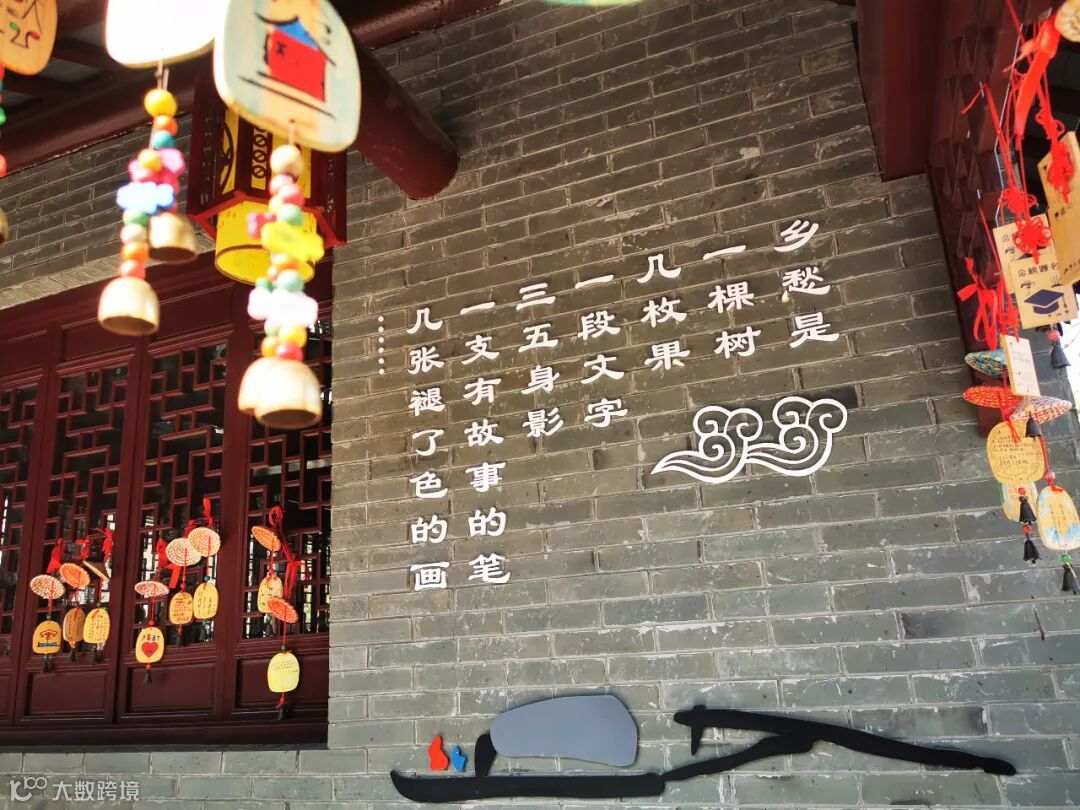 乡愁是
一棵树
几枚果
一段文字
三五身影
一支有故事的笔
几张褪了色的画
……
金榜题名
学业
大数跨境